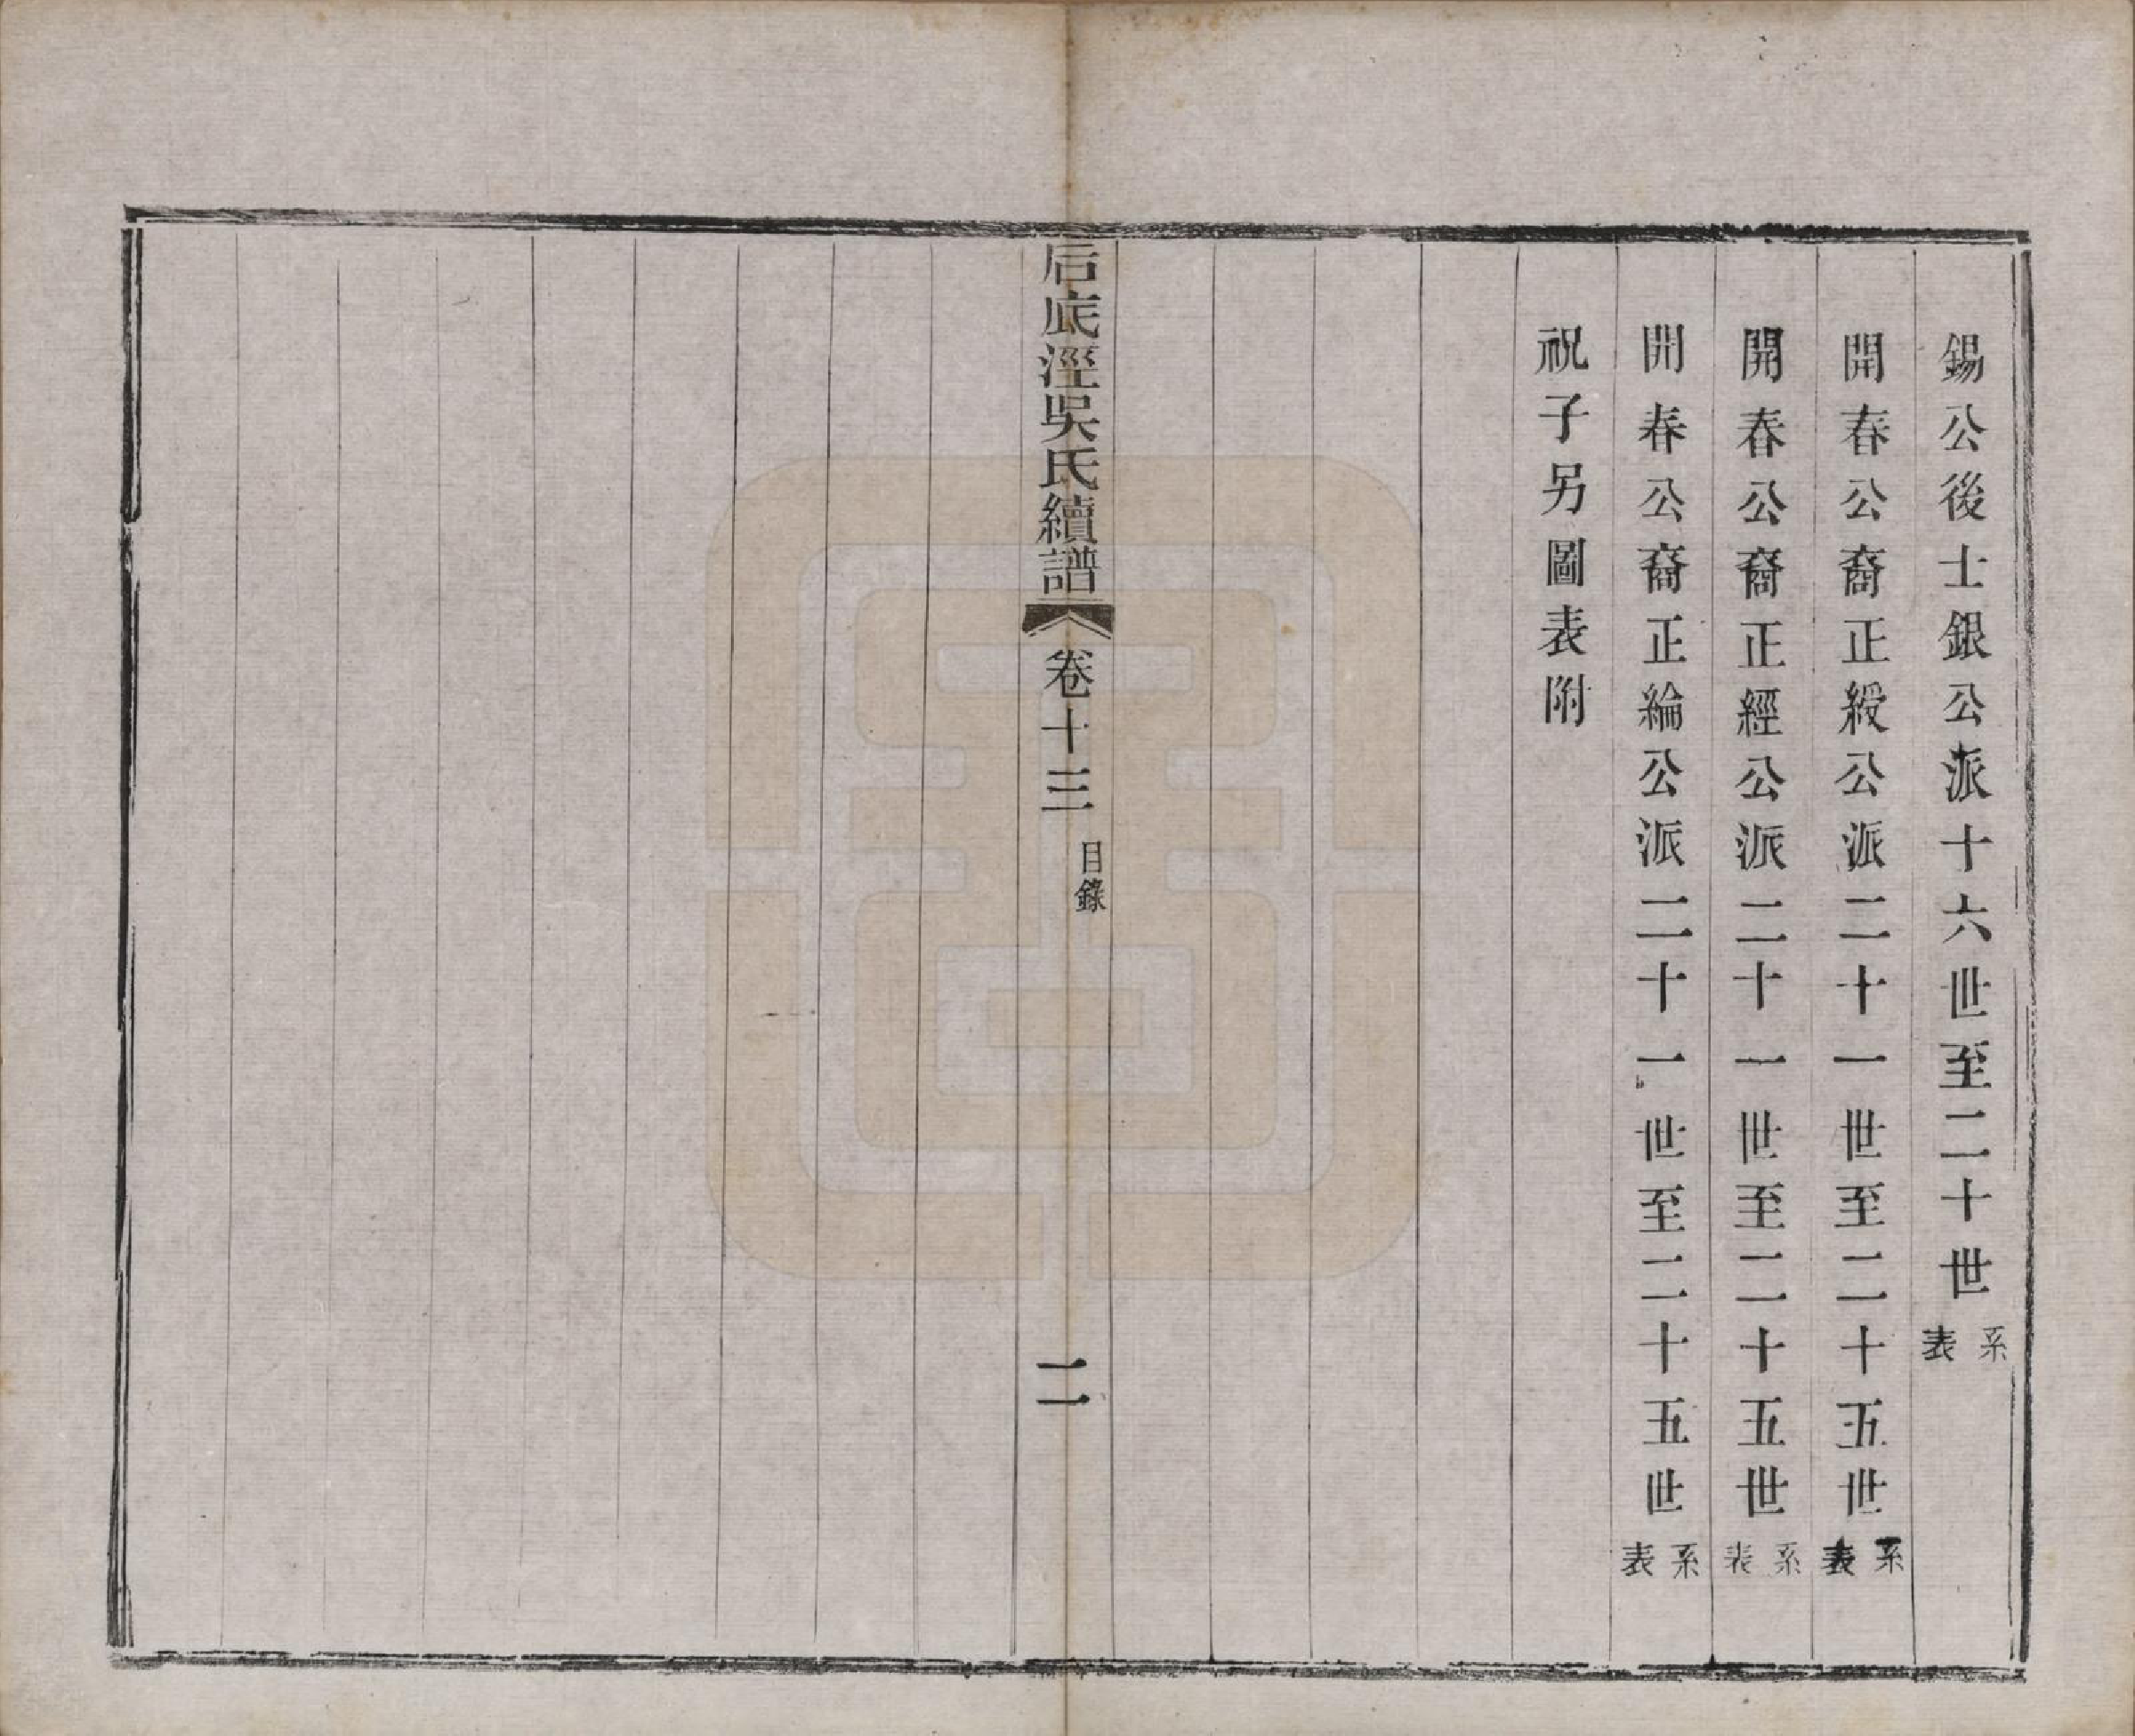 錫公後士銀公派十六世至二十世系表
開春公裔正綬公派二十一世至二十五世系表
開春公裔正經公派二十一世至二十五世系表
開春公裔正綸公派二十一世至二十五世系表
祝子另圖表附
后底涇吳氏續譜 卷十三 目錄 二